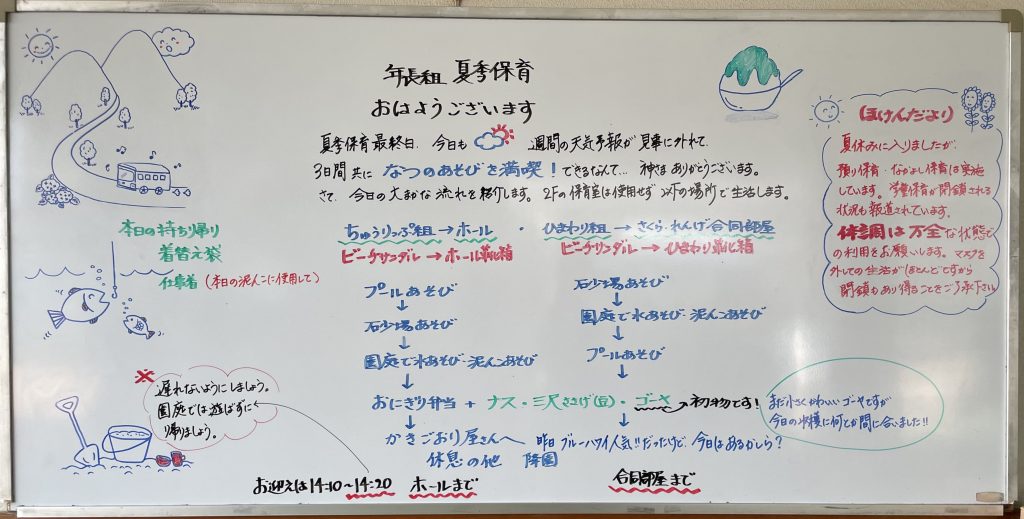 年長組 夏季保育
おはようございます
夏季保育最終日. 今日も 週間の天気予報が見事に外れて.
3日間共に なつのあそびを満喫！できるなんて… 神さまありがとうございます。
さて、今日の大まかな流れを紹介します。2Fの保育室は使用せず 以下の場所で生活します。
ちゅうりっぷ組→ホール ・ ひまわり組→さくら・れんげ合同部屋
ビーチサンダル→ホール靴箱 ビーチサンダル→ひまわり靴箱
プールあそび
↓
石少場あそび
↓
園庭で水あそび・泥んこあそび
↓
石少場あそび
↓
園庭で水あそび・泥んこあそび
↓
プールあそび
↓
おにぎり弁当 + ナス・三尺ささげ(豆)・ゴーヤ → 初物です！
まだ小さくかわいいゴーヤですが
今日の収穫に何とか間に合いました!!
かきごおり屋さんへ 昨日ブルーハワイ人気!!だったけど、今日はあるかしら？
休息の他 降園
お迎えは14:10〜14:20 ホールまで 合同部屋まで
本日の持ち帰り
着替え袋
仕事着(本日の泥んこに使用して)
※
遅れないようにしましょう。
園庭では遊ばずに
帰りましょう。
(ほけんだより)
夏休みに入りましたが、
預り保育・なかよし保育は実施
しています。学童保育が閉鎖される
状況も報道されています。
体調は万全な状態で
の利用をお願いします。マスクを
外しての生活がほとんどですから
閉鎖もあり得ることをご了承下さい